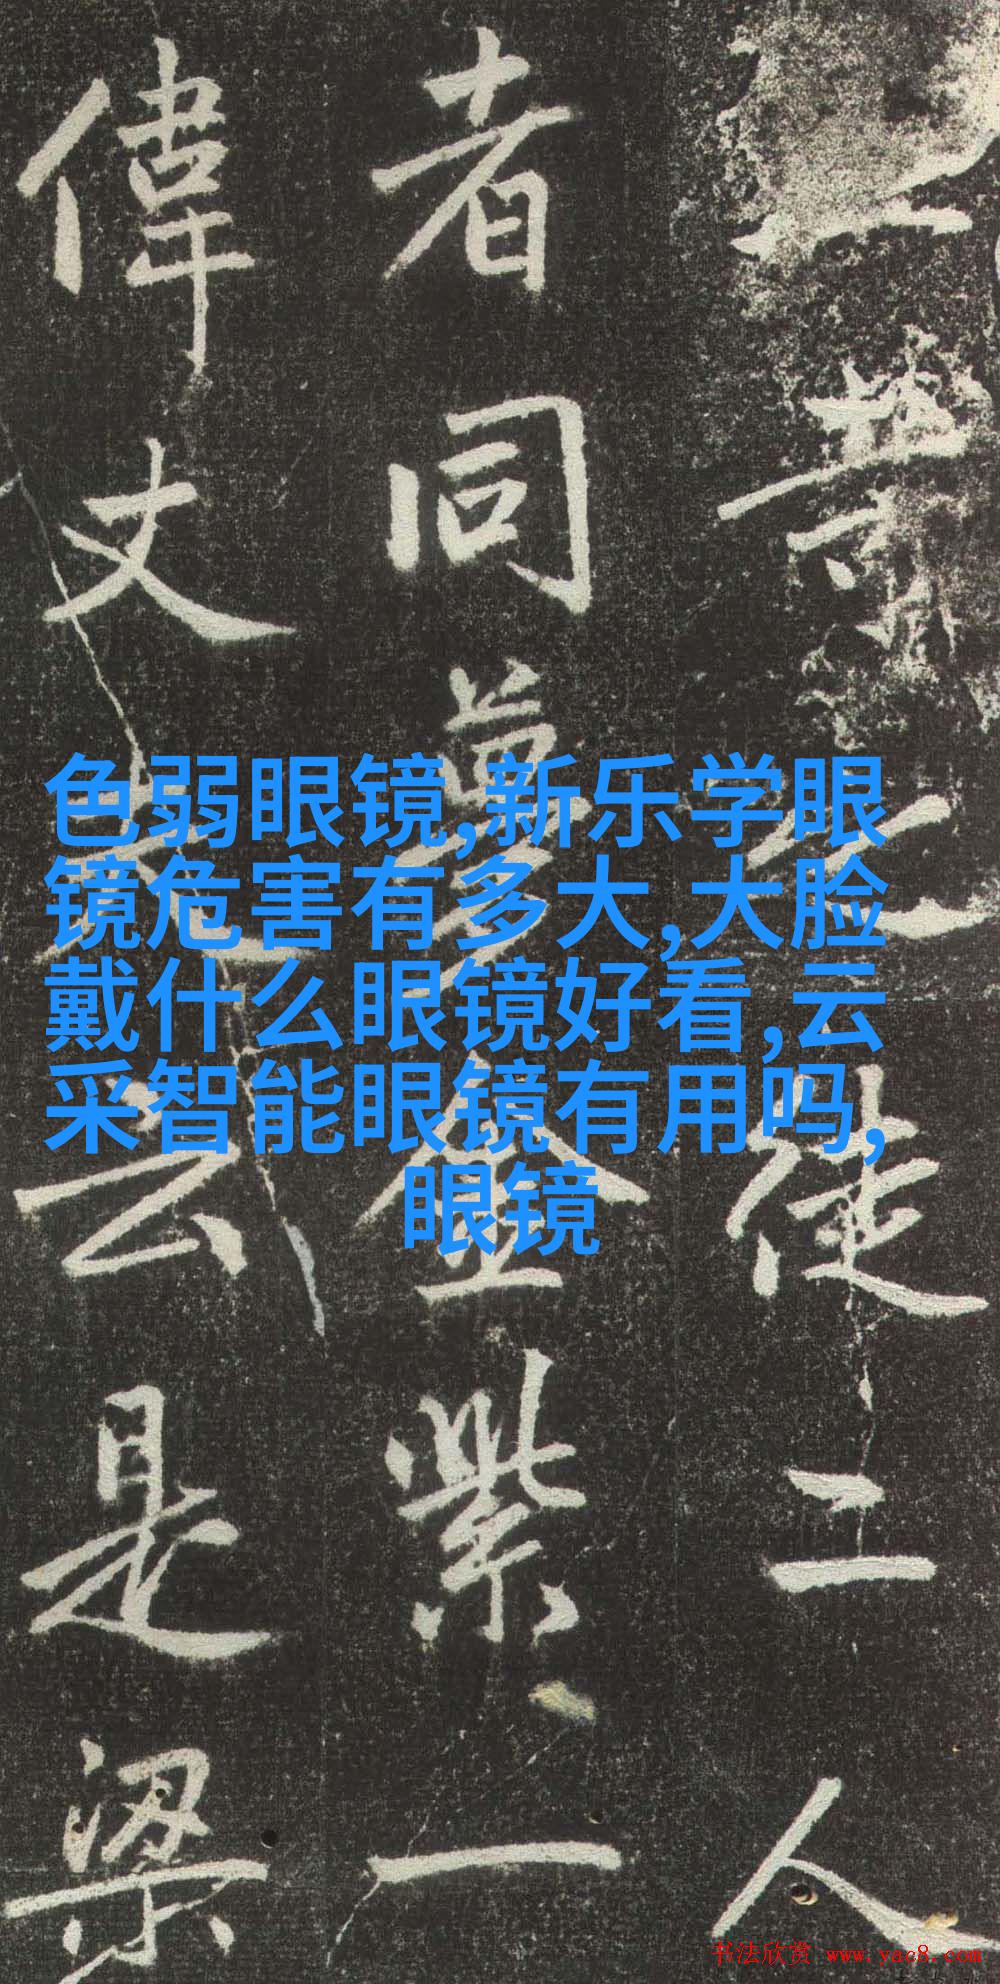 之徒二人
者同夢金紫一
偉丈夫云是梁
色弱眼镜,新乐学眼
镜危害有多大,大脸
戴什么眼镜好看,云
采智能眼镜有用吗,
眼镜
书法欣赏 www.yac8.com